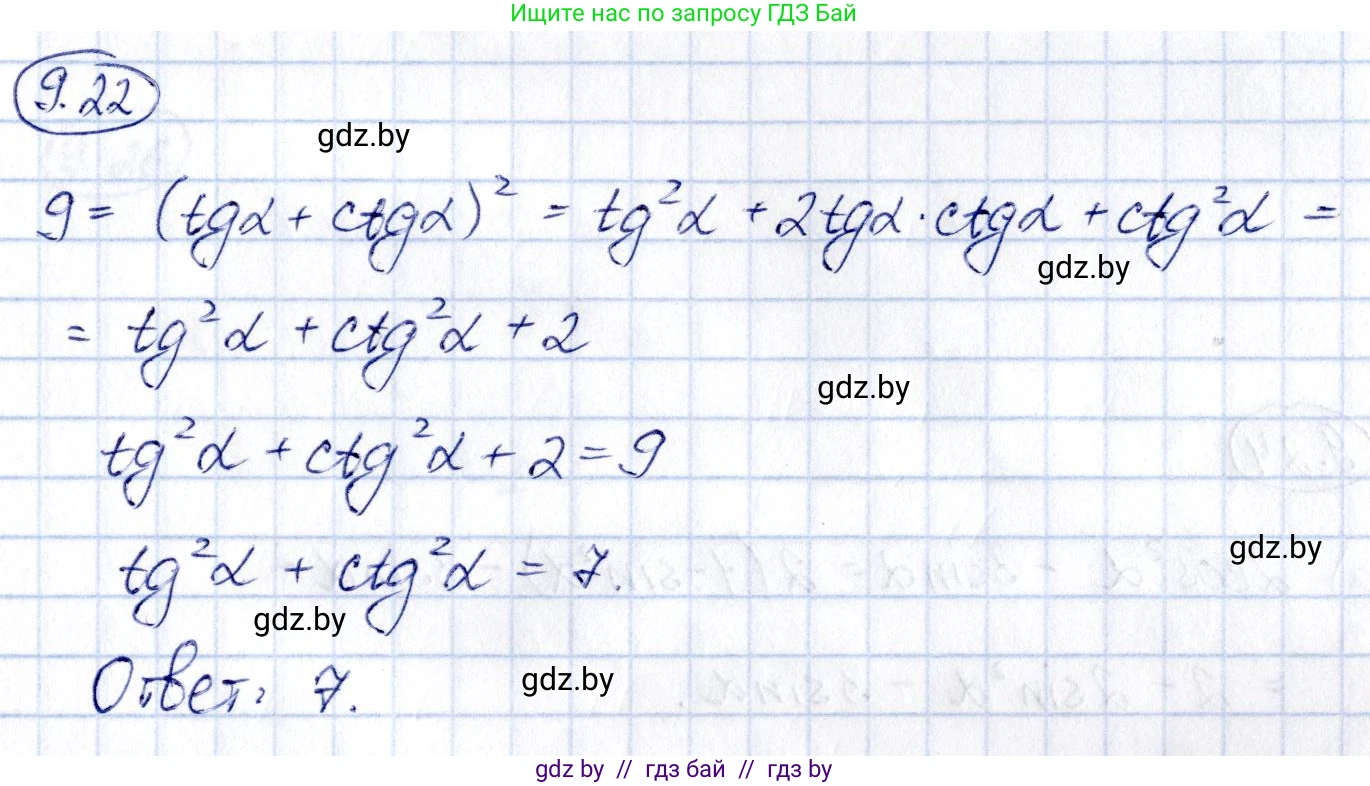 Ищите нас по запросу ГДЗ Бай
9.22
gdz.by
9 = (tgα + ctgα)² = tg²α + 2tgα · ctgα + ctg²α =
gdz.by
= tg²α + ctg²α + 2
gdz.by
tg²α + ctg²α + 2 = 9
gdz.by
tg²α + ctg²α = 7.
gdz.by
Ответ: 7.
gdz.by
gdz by // гдз бай // gdz by